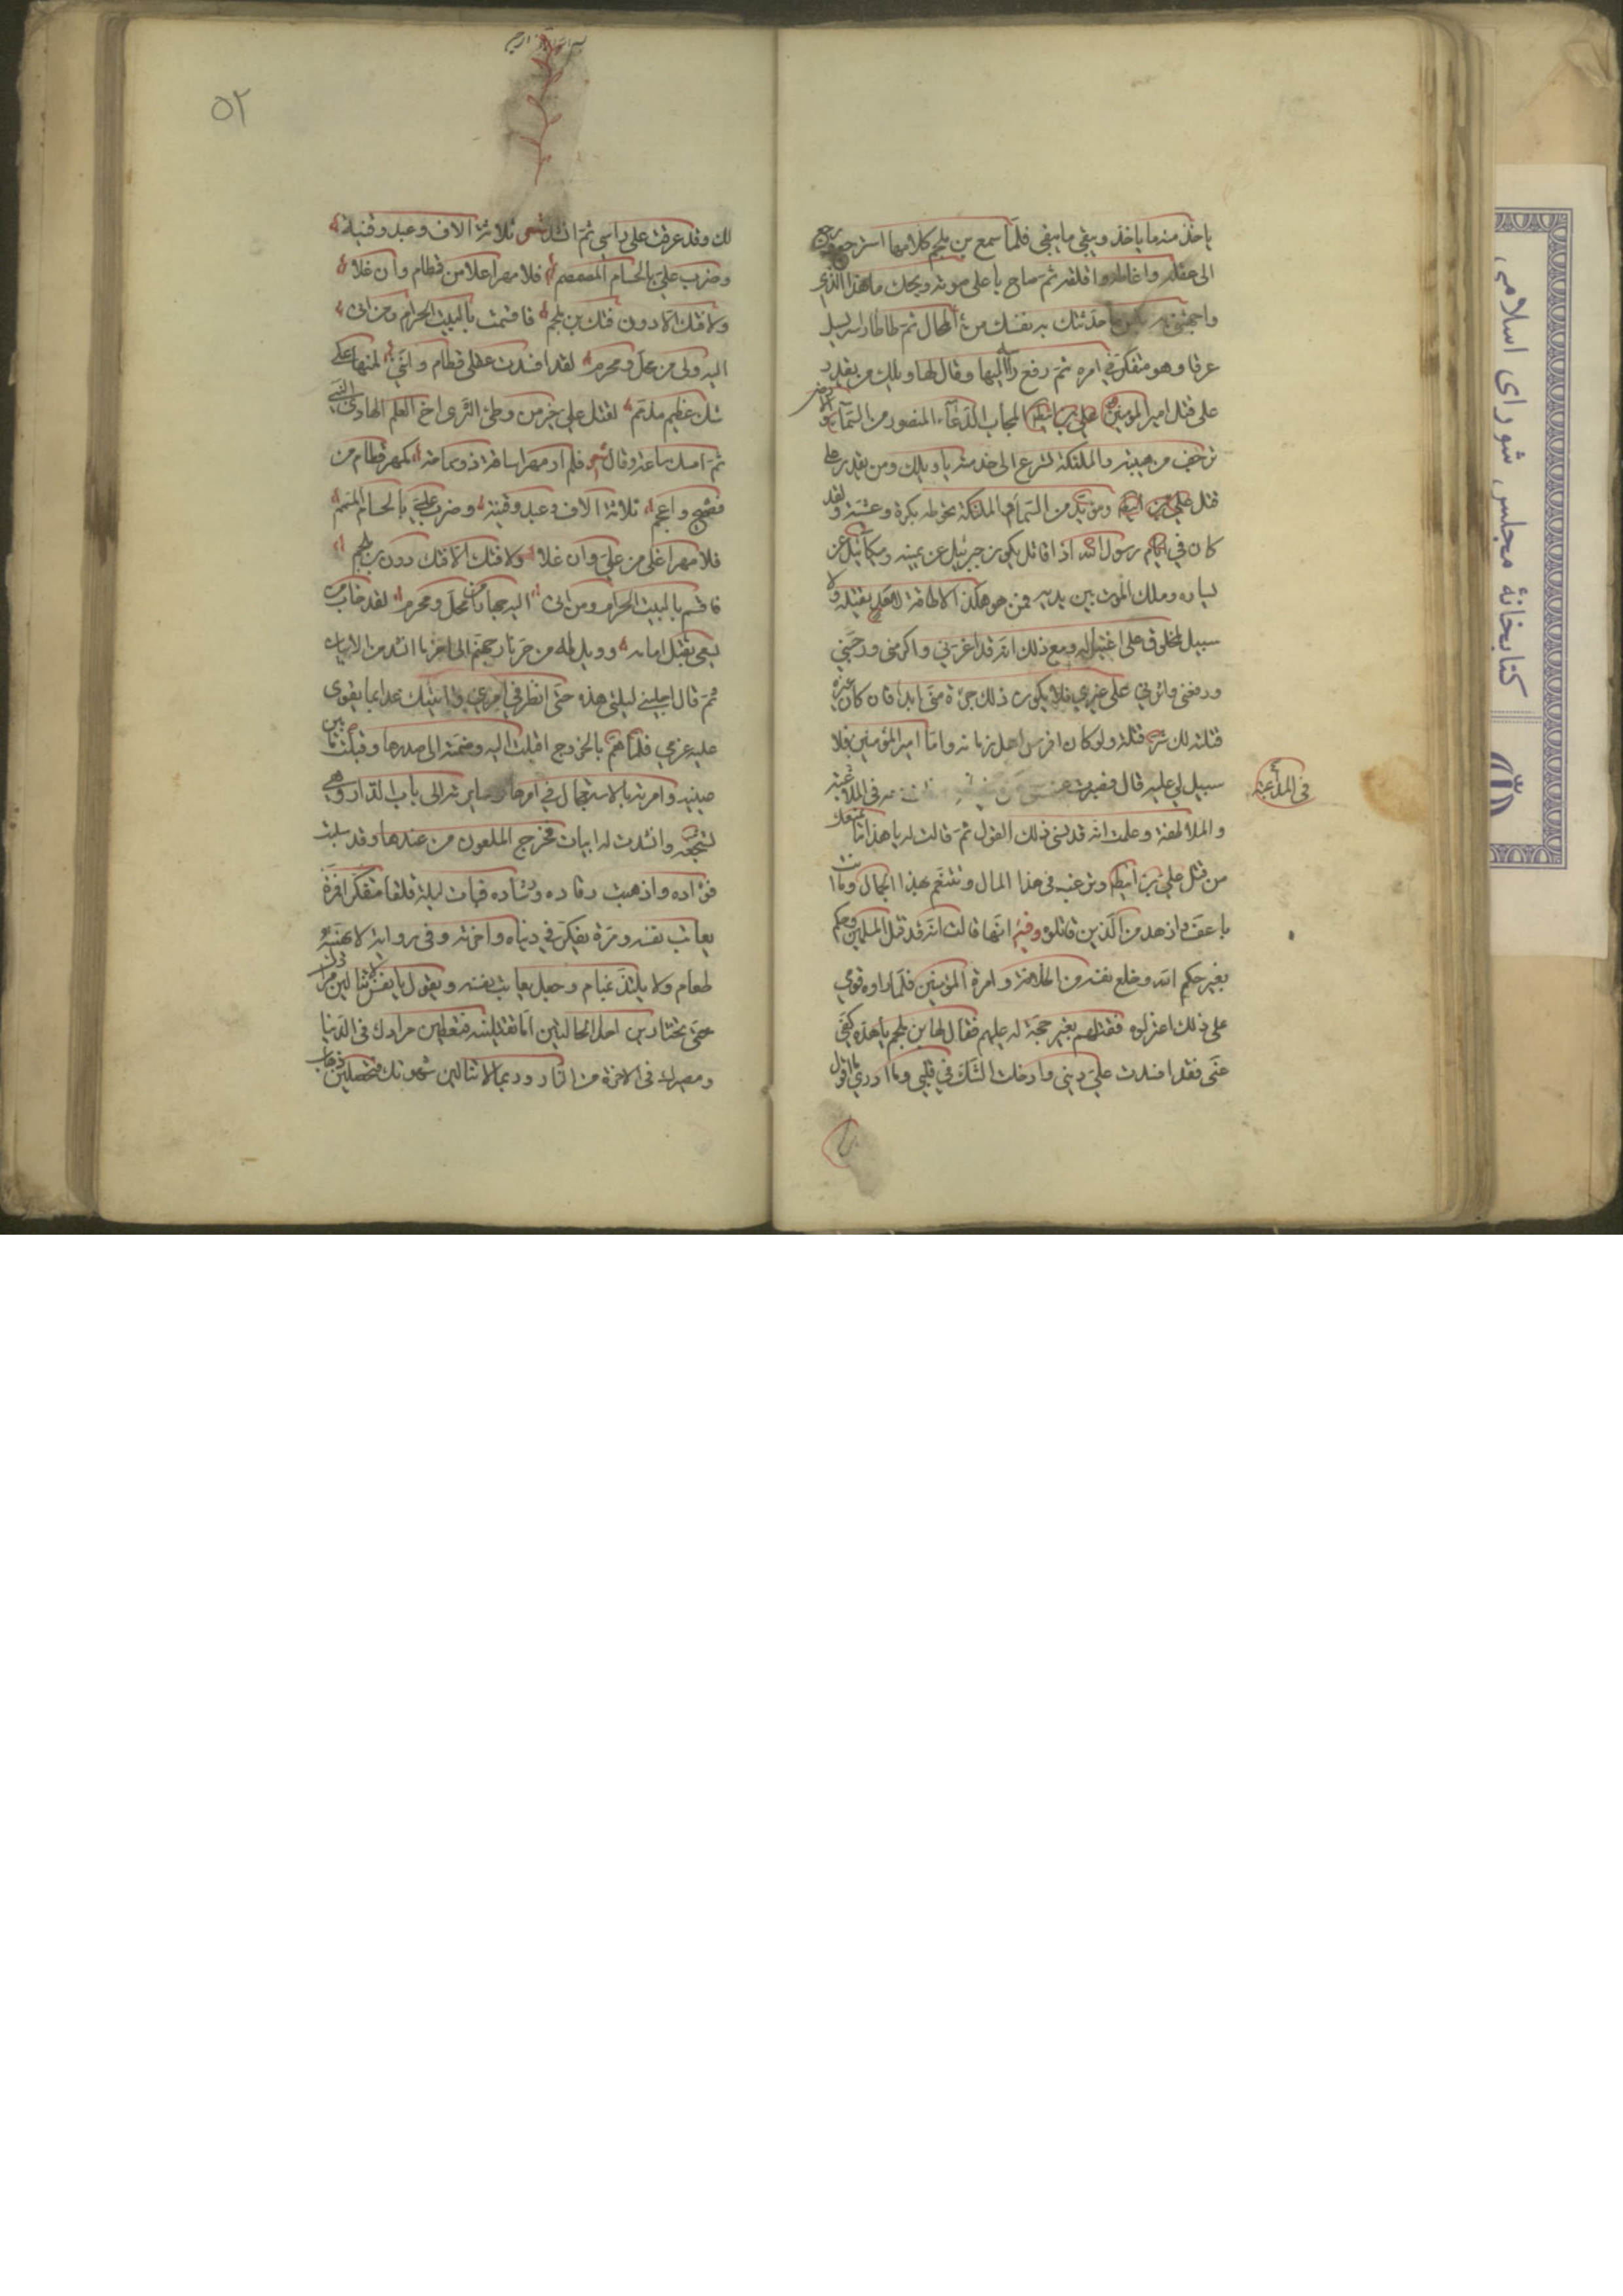 ياخذ منه ما ياخذ ويبقى ما يبقى فلما سمع بن ملجم كلامها استرجع
الى عقله واغاظه واقلقه ثم صاح باعلى صوته ويحك ما هذا الذي
واجهتني به حدثتك به نفسك من المحال ثم طاطا راسه يسيل
عرقا وهو متفكر في امره ثم رفع راسه اليها وقال لها ويلك من يقدر
على قتل امير المؤمنين علي بن ابيطالب المجاب الدعاء المنصور من السماء والارض
ترجف من هيبته والملئكة تسرع الى خدمته يا ويلك ومن يقدر على
قتل علي بن ابيطالب ومؤيد من السماء والملئكة تحوطه بكرة وعشية ولقد
كان في ايام رسول الله اذا قاتل يكون جبرئيل عن يمينه وميكائيل عن
يساره وملك الموت بين يديه فمن هو هكذا لا طاقة لاحد بقتله ولا
سبيل لمخلوق على اغتياله ومع ذلك انه قد اعزني واكرمني ورحبني
ورفعني واثرني على غيري فلا يكون ذلك جزاؤه منى ابدا فان كان غيره
قتلته لك شر قتلة ولو كان افرس اهل زمانه واما امير المؤمنين فلا
سبيل لي عليه قال فصبرت عنه في الملاعبة
في الملاعبة
والملاطفة وعلمت انه قد نسى ذلك القول ثم قالت له يا هذا ما يمنعك
من قتل علي بن ابيطالب وترغب في هذا المال وتتنعم بهذا الجمال وما انت
باعف وازهد من الذين قاتلوه وفي انها قالت انه قد قتل المسلمين وحكم
بغير حكم الله وخلع نفسه من الخلافة وامرة المؤمنين فلما راوه قومي
على ذلك اعتزلوه فقتلهم بغير حجة له عليهم فقال لها بن ملجم يا هذه كفى
عنى فقد افسدت علي ديني وادخلت الشك في قلبي وما ادري ما اقول
٥٢
لك وقد عزمت على راسى ثم انشد شعر ثلاثة الاف وعبد وقنية
وضرب علي بالحسام المصمصم فلا مهرا علا من قطام وان غلا
ولا فتك الا دون فتك بن ملجم فاقسمت بالبيت الحرام ومن اتى
اليه ولى من محل ومحرم لقد افسدت عقلى قطام وانني لمنها على
شك عظيم مذمم لقتل علي خير من وطئ الثرى اخ العلم الهادى النبي
ثم امسك ساعة وقال شعر فلم ار مهرا ساقه ذو سماحة كمهر قطام من
فصيح واعجم ثلاثة الاف وعبد وقينة وضرب علي بالحسام المسمم
فلا مهرا غلى من علي وان غلا ولا فتك الا فتك دون بن ملجم
فاقسم بالبيت الحرام ومن اتى اليه جهارا من محل ومحرم لقد خاب من
يسعى بقتل امامه وويل له من حر نار جهنم الى اخر ما انشد من الابيات
ثم قال اجليني ليلتى هذه حتى انظر في امري واتيتك غدا بما يقوى
عليه عزمي فلما هم بالخروج اقبلت اليه وضمته الى صدرها وقبلت ما بين
عينيه وامرته بالاستعجال في امرها وسايرته الى باب الدار وهي
تشجعه وانشدت له ابيات فخرج الملعون من عندها وقد سلبت
فؤاده واذهبت رقاده ورشاده فبات ليلة قلقا متفكرا فمرة
يعاتب نفسه ومرة يفكر في دنياه واخرته وفي رواية لا يهنيه
طعام ولا يلتذ بمنام وجعل يعاتب نفسه ويقول يا نفس لا تنالين مرادك
حتى تختارين احد الحالتين اما تقتلينه فتعطين مرادك في الدنيا
ومصيرك في الاخرة من النار وربما لا تنالين شهوتك فتحصلين
كتابخانهٔ مجلس شورای اسلامی